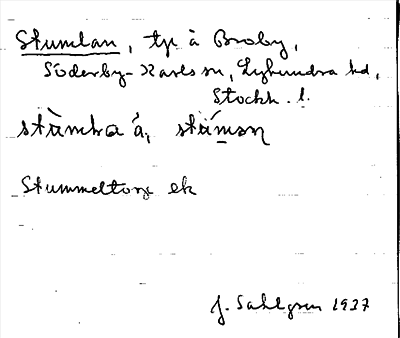 Stumlan, tp å Broby,
Söderby-Karls sn, Lyhundra hd,
Stockh. l.
Stummeltorp ek
J. Sahlgren 1937